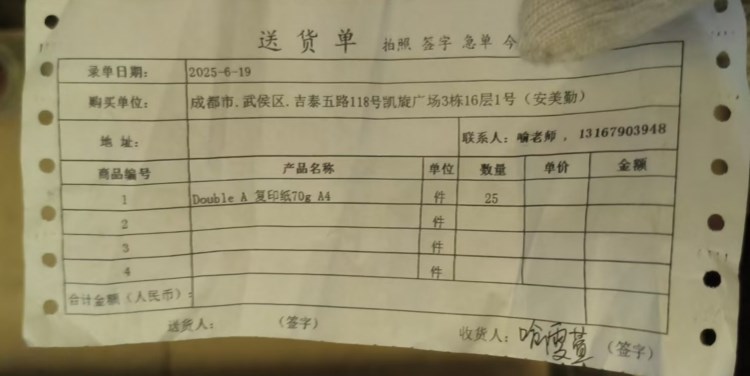 送货单 拍照 签字 急单 今
录单日期： 2025-6-19
购买单位： 成都市.武侯区.吉泰五路118号凯旋广场3栋16层1号（安美勤）
地 址： 联系人：喻老师，13167903948
商品编号 产品名称 单位 数量 单价 金额
1 Double A 复印纸70g A4 件 25
2 件
3 件
4 件
合计金额（人民币）：
送货人： （签字） 收货人： （签字）